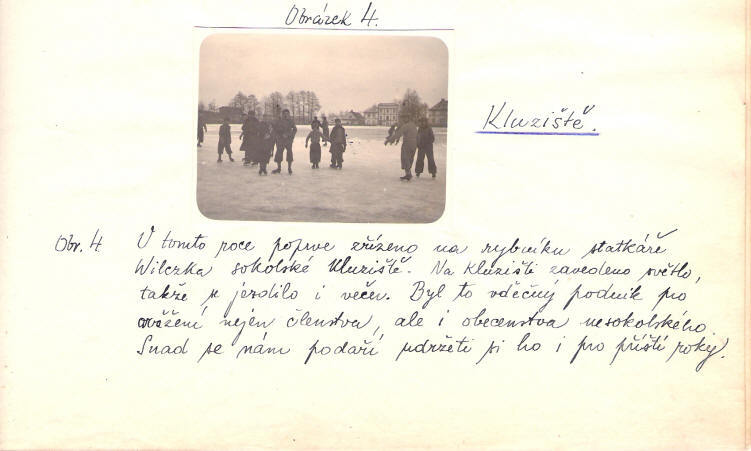 Obrázek 4.
Kluziště.
Obr. 4 V tomto roce poprve zřízeno na rybníku statkáře
Wilczka sokolské kluziště. Na kluzišti zavedeno světlo,
takže se jezdilo i večer. Byl to vděčný podnik pro
osvěžení nejen členstva, ale i obecenstva nesokolského.
Snad se nám podaří udržeti si ho i pro příští roky.